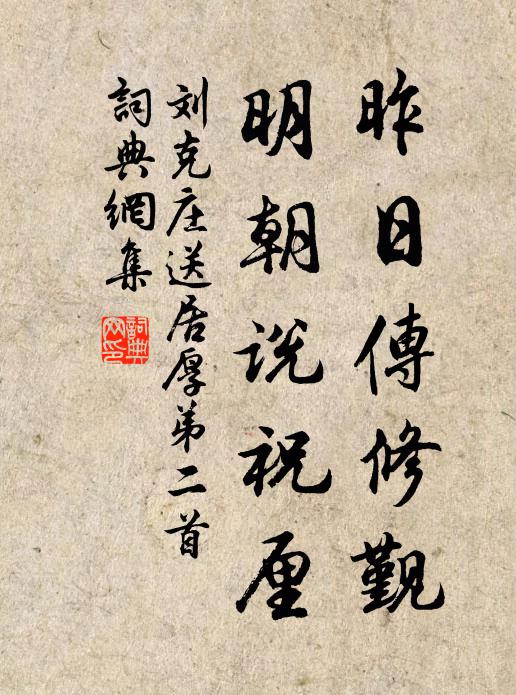 昨日傳修觐
明朝说祝厘
刘克庄送居厚弟二首
詞典網集
詞典网印